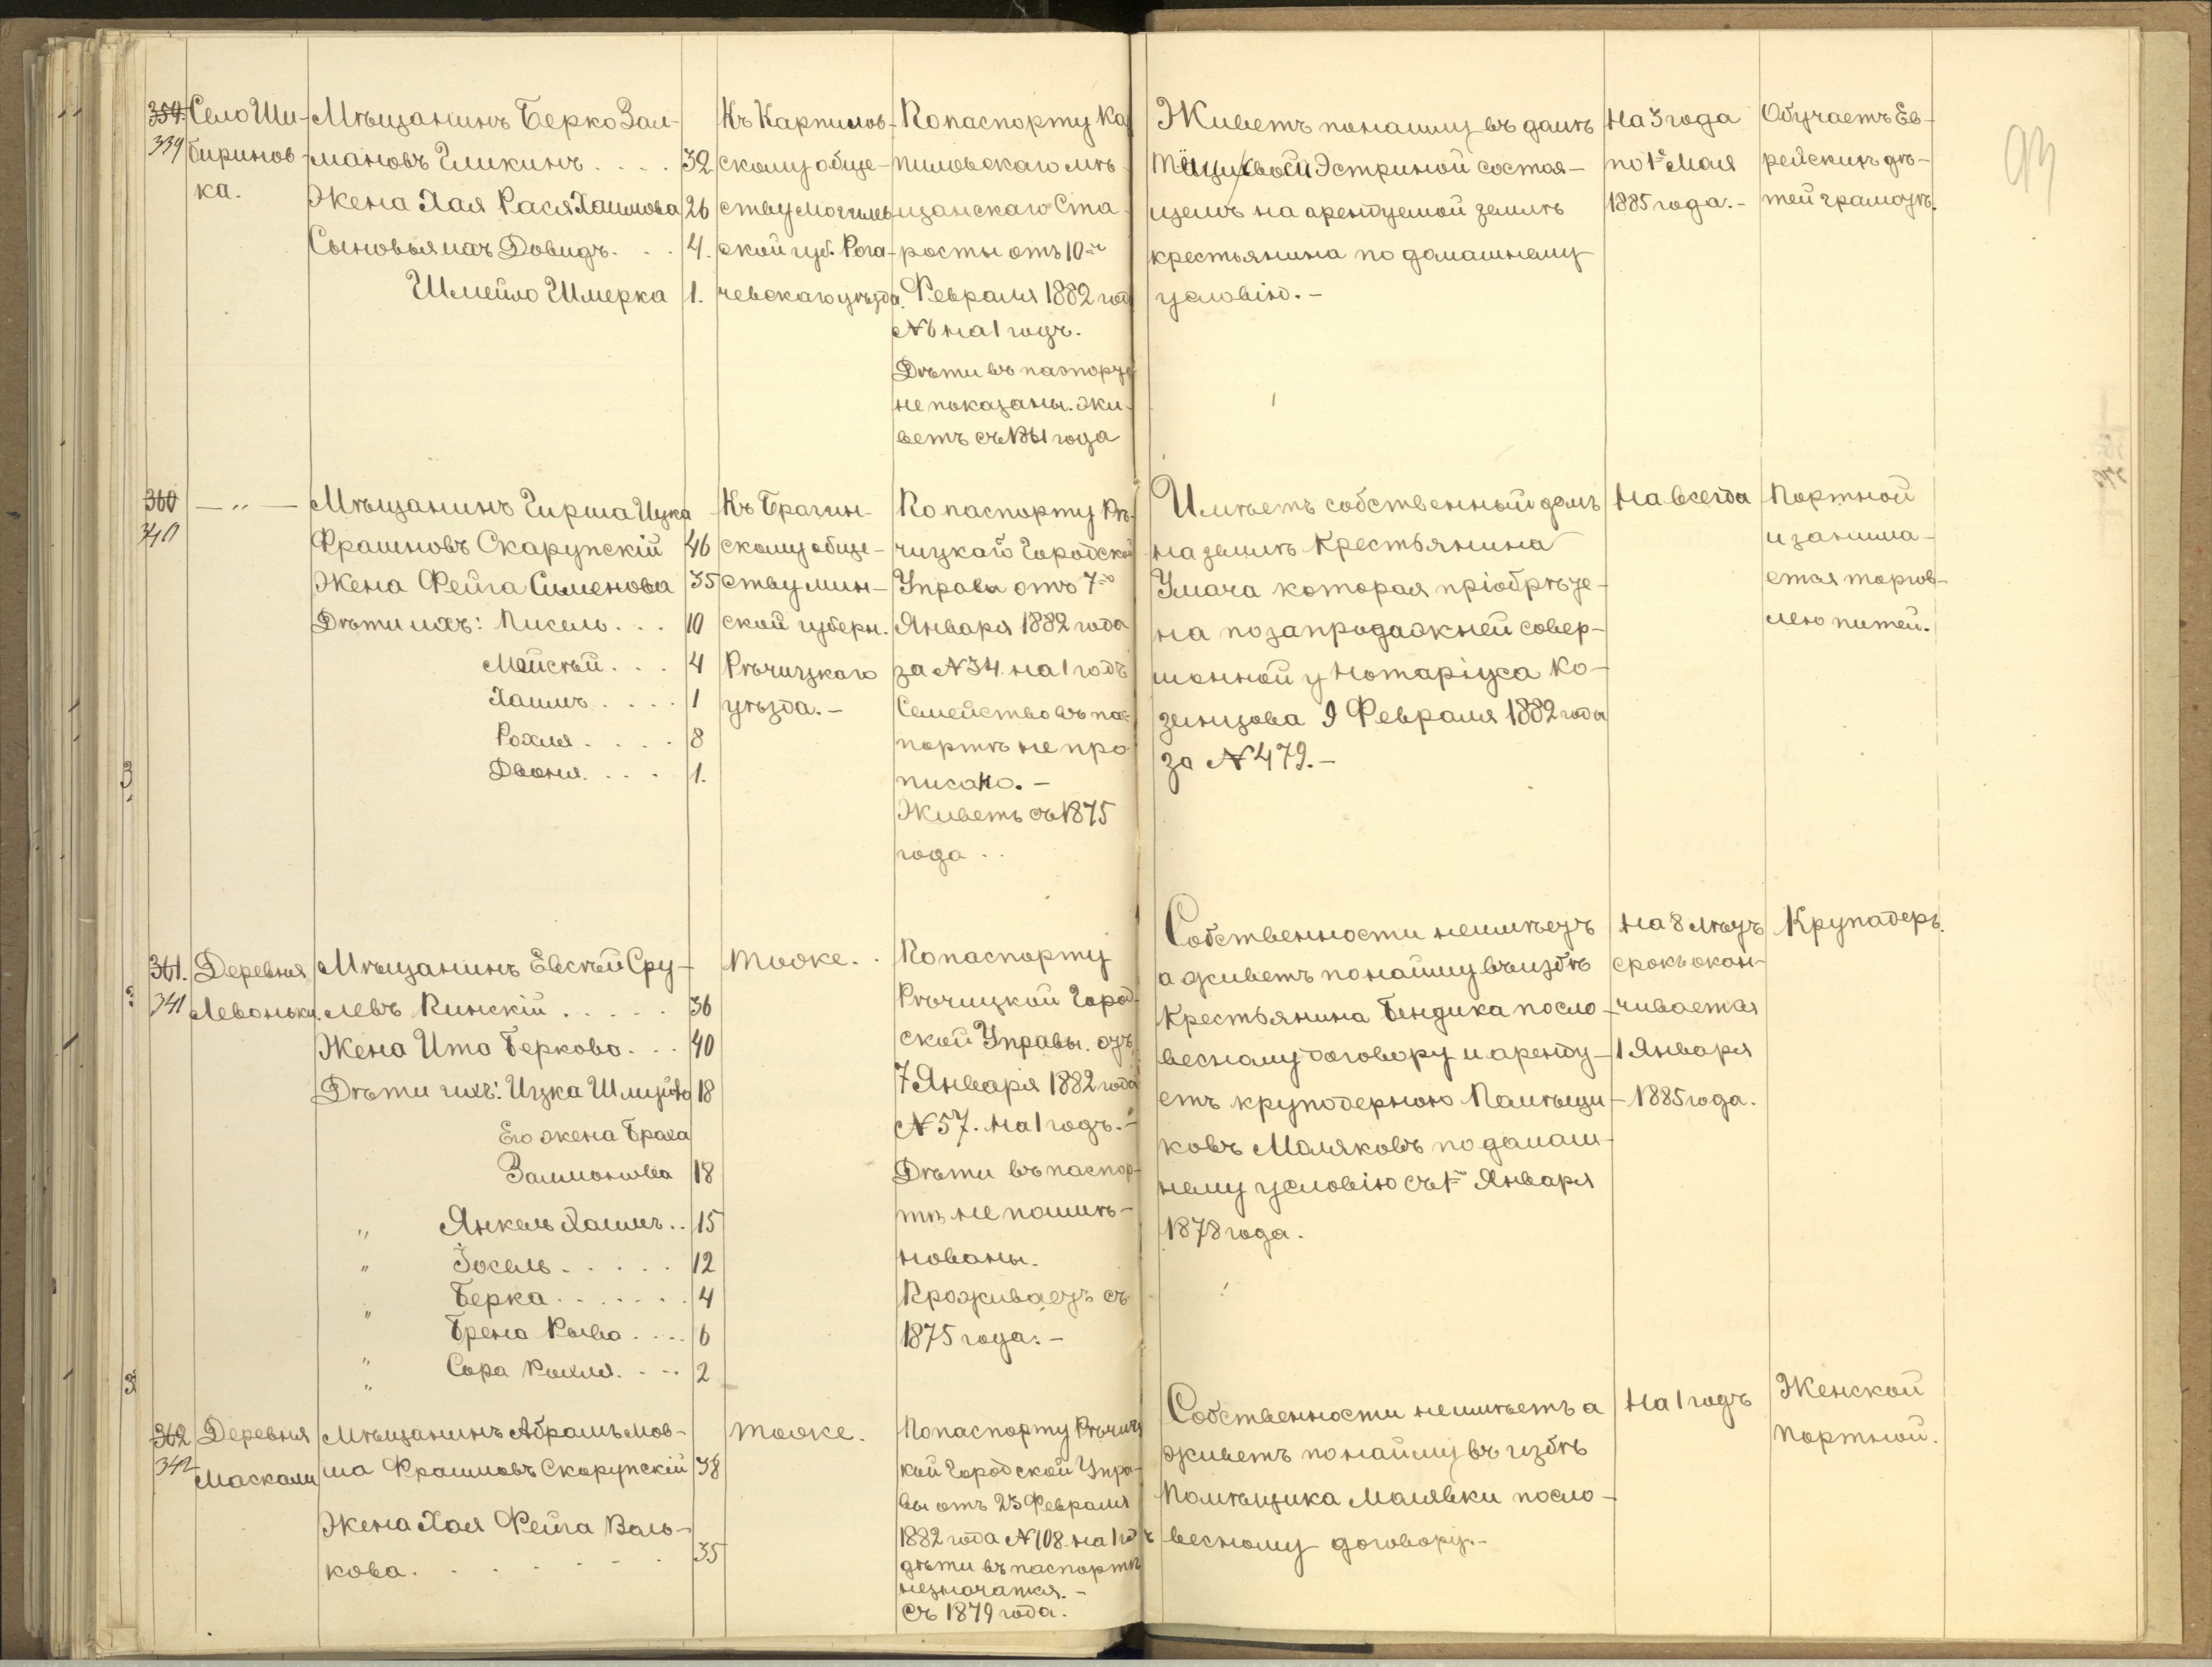 93
359. Село Ши-
339 биринов-
ка.
Мѣщанинъ Берко Зал-
мановъ Гликинъ .... 32
Жена Хая Рася Хаимова 26
Сыновья ихъ Довидъ. . . 4.
Шмейло Шмерка 1.
Къ Карпилов-
скому обще-
ству Могилев-
ской губ. Рога-
чевскаго уѣзда.
По паспорту Ка
пиловскаго мѣ-
щанскаго Ста-
росты отъ 10го
Февраля 1882 год
№ 6 на 1 годъ.
Дѣти въ паспорт
не показаны. Жи-
ветъ съ 1881 года
Живетъ по найму въ домѣ
Эстриной состоя-
щемъ на арендуемой землѣ
крестьянина по домашнему
условію. -
На 3 года
по 1е Мая
1885 года. -
Обучаетъ Ев-
рейскихъ дѣ-
тей грамотѣ.
360 — „ —
340
Мѣщанинъ Гирша Ицка
Фраимовъ Скарупскій 46
Жена Фейга Сименова 35
Дѣти ихъ: Писель. . . 10
Мойсѣй. . . . 4
Хаимъ. . . . 1
Рохля. . . . 8
Двоня. . . . 1.
Къ Брагин-
скому обще-
ству мин-
ской губерн.
Рѣчицкаго
уѣзда. -
По паспорту Рѣ-
чицкаго Городской
Управы отъ 7го
Января 1882 года
за № 34. на 1 годъ
Семейство въ пас-
портѣ не про-
писано. -
Живетъ съ 1875
года . .
Имѣетъ собственный домъ
на землѣ Крестьянина
Умача которая пріобрѣте-
на по запродажней совер-
шонной у Нотаріуса Ко-
зенцова 9 Февраля 1882 года
за № 479. -
На всегда
Портной
и занима-
ется торгов-
лею питей.
361. Деревня
341 Левоньки.
Мѣщанинъ Евсѣй Сру-
левъ Пинскій . . . . . 36
Жена Ита Беркова. . . 40
Дѣти ихъ: Ицка Шмуйло 18
Его жена Браха
Залмонова 18
„ Янкель Хаимъ. . 15
„ Іосель. . . . . 12
„ Берка. . . . . . . 4
„ Брена Рыва . . . . 6
„ Сора Рохля. . . . 2
тоже. .
По паспорту
Рѣчицкой Город-
ской Управы. отъ
7 Января 1882 года
№ 57. на 1 годъ. -
Дѣти въ паспор-
тѣ не поимѣ-
нованы.
Проживаетъ съ
1875 года. -
Собственности неимѣетъ
а живетъ по найму въ избѣ
Крестьянина Бендика посло-
весному договору и аренду-
етъ круподерною Помѣщи-
ковъ Маляковъ по домаш-
нему условію съ 1го Января
1878 года.
На 8 лѣтъ
срокъ окан-
чивается
1 Января
1885 года.
Круподеръ.
362 Деревня
342 Маскали
Мѣщанинъ Абрамъ Мов-
ша Фраимовъ Скорупскій 38
Жена Хая Фейга Валь-
кова. . . . . . . 35
тоже.
По паспорту Рѣчиц
кой Городской Упра-
вы отъ 23 Февраля
1882 года № 108. на 1 годъ
дѣти въ паспортѣ
незначатся. -
съ 1879 года.
Собственности неимѣетъ а
живетъ по найму въ избѣ
Помѣщика Малявки посло-
весному договору. -
На 1 годъ
Женской
портной.